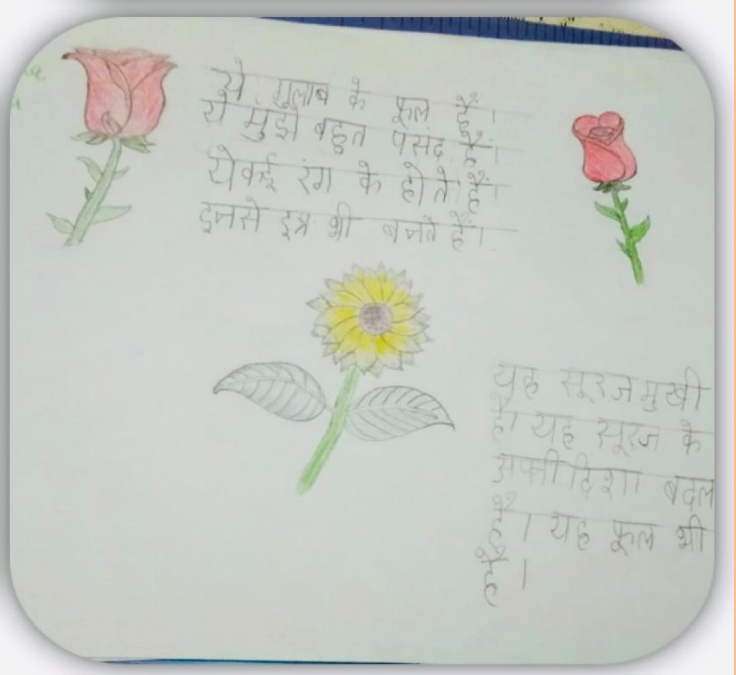 ये गुलाब के फूल हैं।
ये मुझे बहुत पसंद हैं।
ये कई रंग के होते हैं
इनसे इत्र भी बनते हैं।
यह सूरजमुखी
है। यह सूरज के
अपनी दिशा बदल
है। यह फूल भी
है।